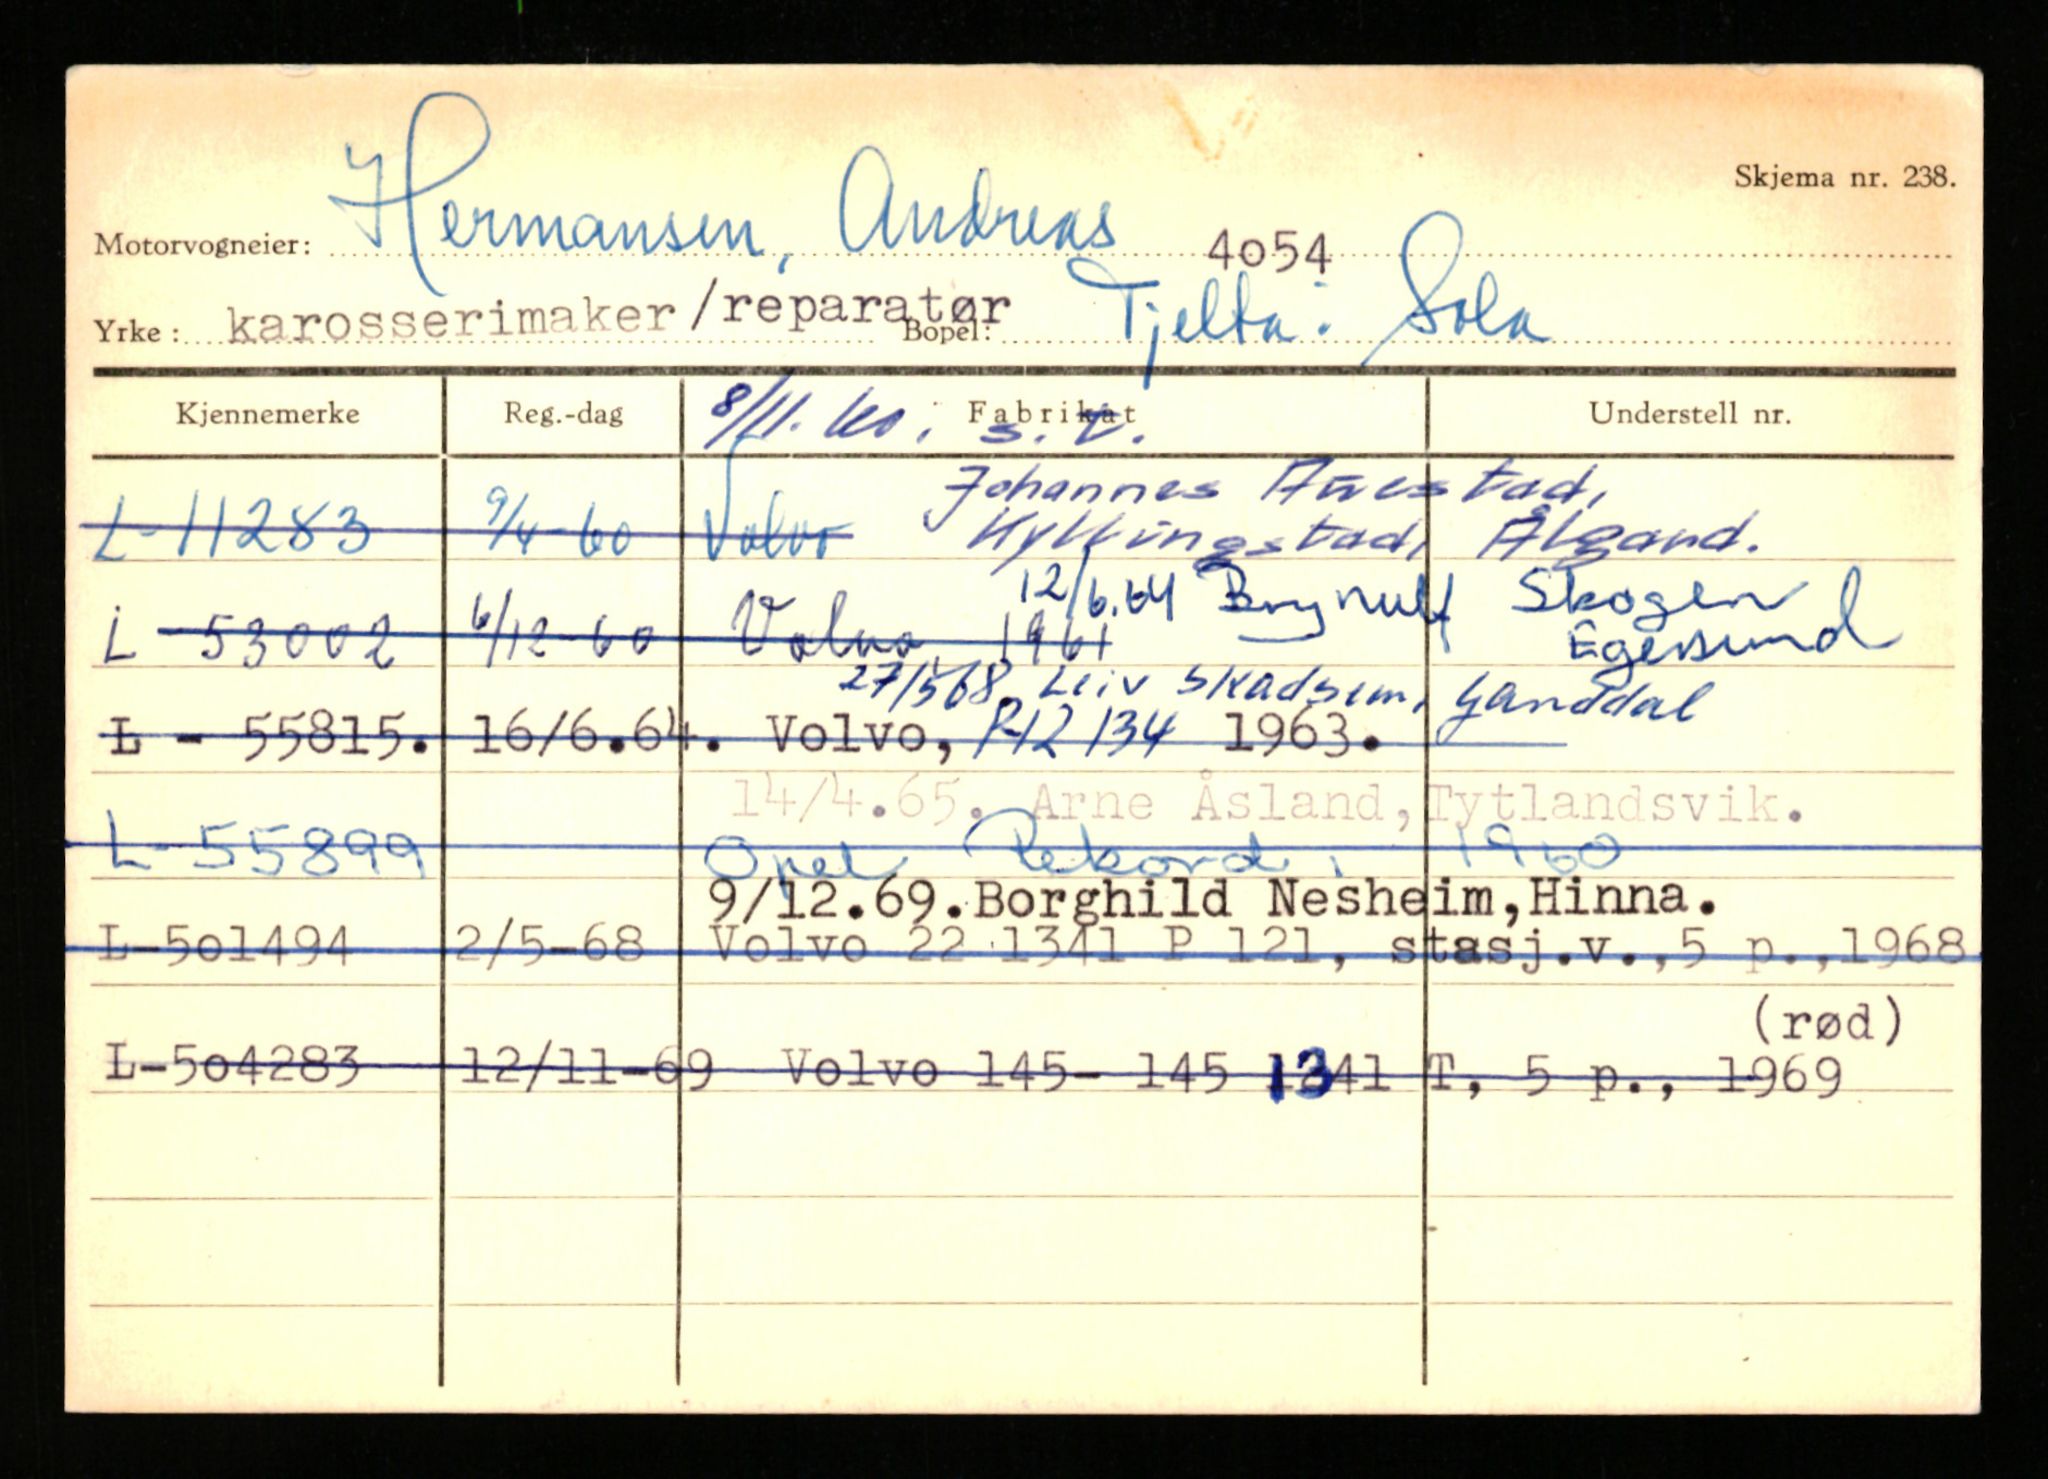 Skjema nr. 238.
Motorvogneier: Hermansen, Andreas
4054
Yrke: karosserimaker/reparatør Bopel: Tjelta. Sola
Kjennemerke Reg.-dag Fabrikat Understell nr.
8/11.60. s. v.
Johannes Auestad,
L-11283 9/4-60 Volvo Kyllingstad, Ålgård.
12/6.64 Brynulf Skogen
L-53002 6/12-60 Volvo, 1961 Egersund
27/5 68 Leiv Skadsem, Ganddal
L - 55815. 16/6.64. Volvo, P-12134 1963.
14/4.65. Arne Åsland, Tytlandsvik.
L-55899 Opel Rekord, 1960
9/12.69. Borghild Nesheim, Hinna.
L-501494 2/5-68 Volvo 22 1341 P 121, stasj.v.,5 p.,1968
(rød)
L-504283 12/11-69 Volvo 145- 145 1341 T, 5 p., 1969